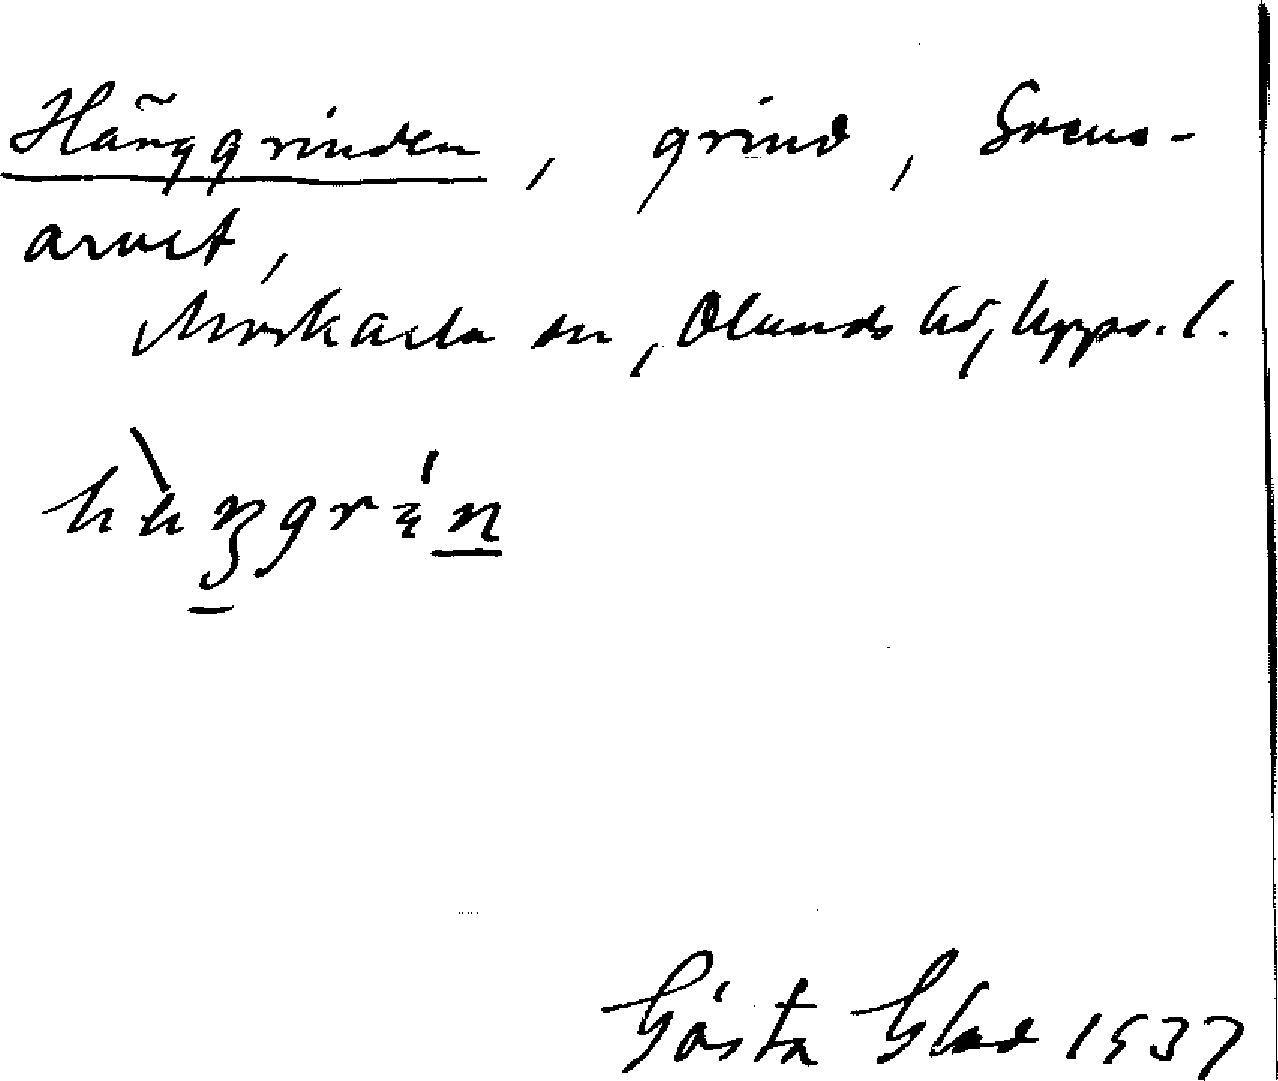 Hänggrinden, grind, Svens-
arvet,
Morkarla sn, Olands hd, Uppl.
Gösta Blad 1937